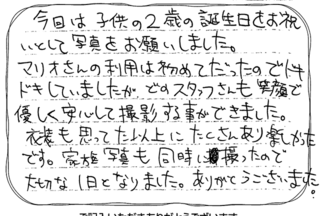 今回は子供の2歳の誕生日をお祝
いとして写真をお願いしました。
マリオさんの利用は初めてだったのでドキ
ドキしていましたが どのスタッフさんも笑顔で
優しく安心して撮影する事ができました。
衣装も思ってた以上にたくさんあり楽しかった
です。家族写真も同時に撮ったので
大切な1日となりました。ありがとうございました。